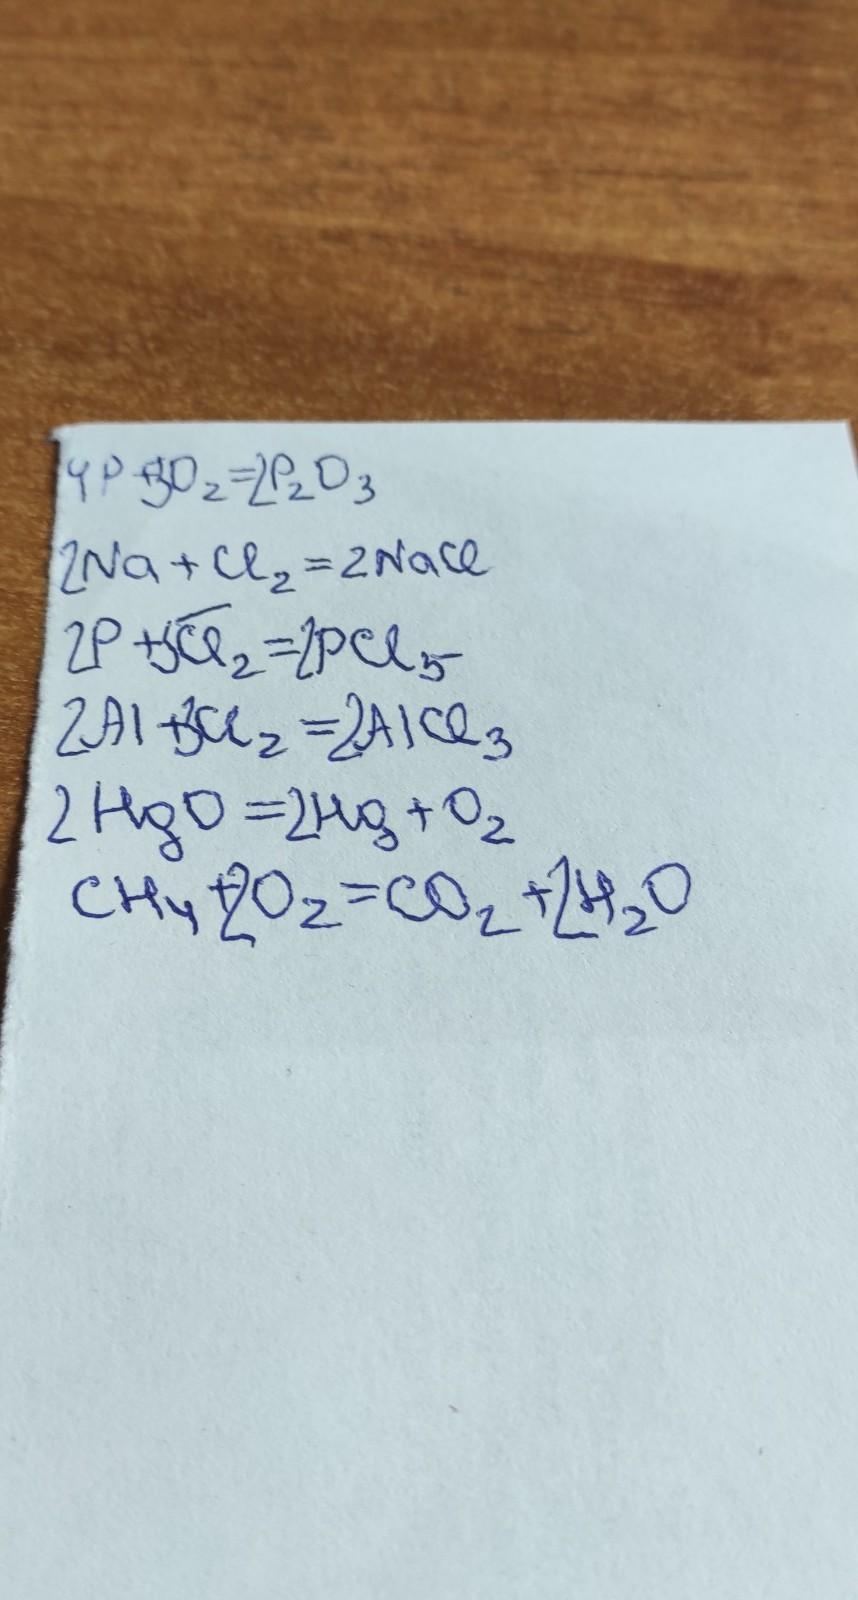 4P+3O₂=2P₂O₃
2Na+Cl₂=2NaCl
2P+5Cl₂=2PCl₅
2Al+3Cl₂=2AlCl₃
2HgO=2Hg+O₂
CH₄+2O₂=CO₂+2H₂O